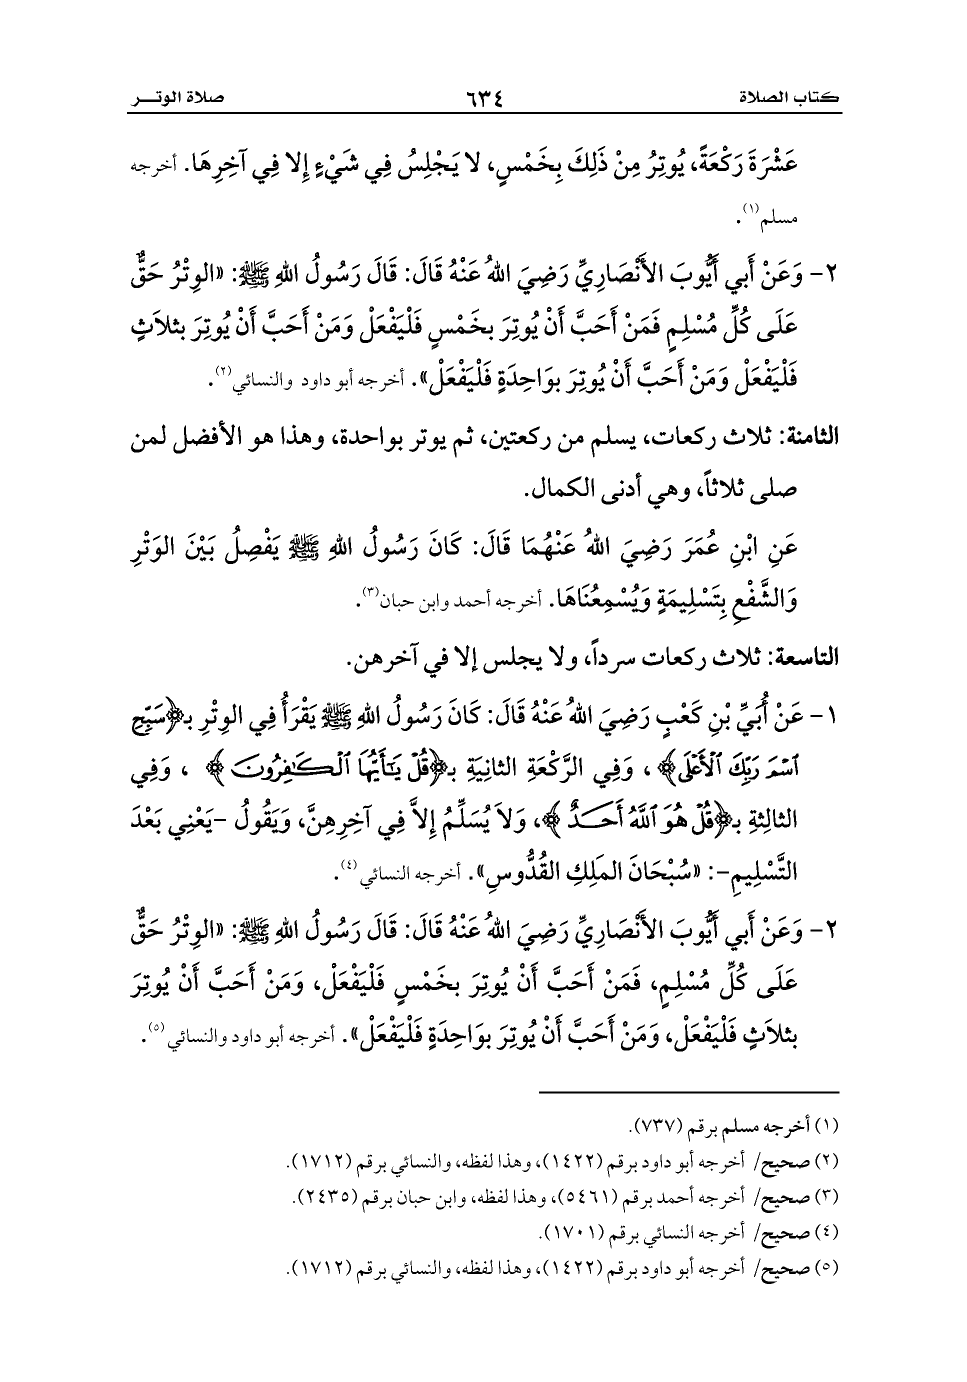 كتاب الصلاة ٦٣٤ صلاة الوتـــر
عَشْرَةَ رَكْعَةً، يُوتِرُ مِنْ ذَلِكَ بِخَمْسٍ، لا يَجْلِسُ فِي شَيْءٍ إِلا فِي آخِرِهَا. أخرجه
مسلم(١).
٢- وَعَنْ أَبي أَيُّوبَ الأَنْصَارِيِّ رَضِيَ اللهُ عَنْهُ قَالَ: قَالَ رَسُولُ اللهِ ﷺ: «الوِتْرُ حَقٌّ
عَلَى كُلِّ مُسْلِمٍ فَمَنْ أَحَبَّ أَنْ يُوتِرَ بخَمْسٍ فَلْيَفْعَلْ وَمَنْ أَحَبَّ أَنْ يُوتِرَ بثلاَثٍ
فَلْيَفْعَلْ وَمَنْ أَحَبَّ أَنْ يُوتِرَ بوَاحِدَةٍ فَلْيَفْعَلْ». أخرجه أبو داود والنسائي(٢).
الثامنة: ثلاث ركعات، يسلم من ركعتين، ثم يوتر بواحدة، وهذا هو الأفضل لمن
صلى ثلاثاً، وهي أدنى الكمال.
عَنِ ابْنِ عُمَرَ رَضِيَ اللهُ عَنْهُمَا قَالَ: كَانَ رَسُولُ اللهِ ﷺ يَفْصِلُ بَيْنَ الوَتْرِ
وَالشَّفْعِ بِتَسْلِيمَةٍ وَيُسْمِعُنَاهَا. أخرجه أحمد وابن حبان(٣).
التاسعة: ثلاث ركعات سرداً، ولا يجلس إلا في آخرهن.
١- عَنْ أُبَيِّ بْنِ كَعْبٍ رَضِيَ اللهُ عَنْهُ قَالَ: كَانَ رَسُولُ اللهِ ﷺ يَقْرَأُ فِي الوِتْرِ بـ﴿سَبِّحِ
ٱسْمَ رَبِّكَ ٱلْأَعْلَى﴾، وَفِي الرَّكْعَةِ الثانِيَةِ بـ﴿قُلْ يَٰٓأَيُّهَا ٱلْكَٰفِرُونَ﴾، وَفِي
الثالِثةِ بـ﴿قُلْ هُوَ ٱللَّهُ أَحَدٌ﴾، وَلاَ يُسَلِّمُ إِلاَّ فِي آخِرِهِنَّ، وَيَقُولُ -يَعْنِي بَعْدَ
التَّسْلِيمِ-: «سُبْحَانَ المَلِكِ القُدُّوسِ». أخرجه النسائي(٤).
٢- وَعَنْ أَبي أَيُّوبَ الأَنْصَارِيِّ رَضِيَ اللهُ عَنْهُ قَالَ: قَالَ رَسُولُ اللهِ ﷺ: «الوِتْرُ حَقٌّ
عَلَى كُلِّ مُسْلِمٍ، فَمَنْ أَحَبَّ أَنْ يُوتِرَ بخَمْسٍ فَلْيَفْعَلْ، وَمَنْ أَحَبَّ أَنْ يُوتِرَ
بثلاَثٍ فَلْيَفْعَلْ، وَمَنْ أَحَبَّ أَنْ يُوتِرَ بوَاحِدَةٍ فَلْيَفْعَلْ». أخرجه أبو داود والنسائي(٥).
(١) أخرجه مسلم برقم (٧٣٧).
(٢) صحيح/ أخرجه أبو داود برقم (١٤٢٢)، وهذا لفظه، والنسائي برقم (١٧١٢).
(٣) صحيح/ أخرجه أحمد برقم (٥٤٦١)، وهذا لفظه، وابن حبان برقم (٢٤٣٥).
(٤) صحيح/ أخرجه النسائي برقم (١٧٠١).
(٥) صحيح/ أخرجه أبو داود برقم (١٤٢٢)، وهذا لفظه، والنسائي برقم (١٧١٢).